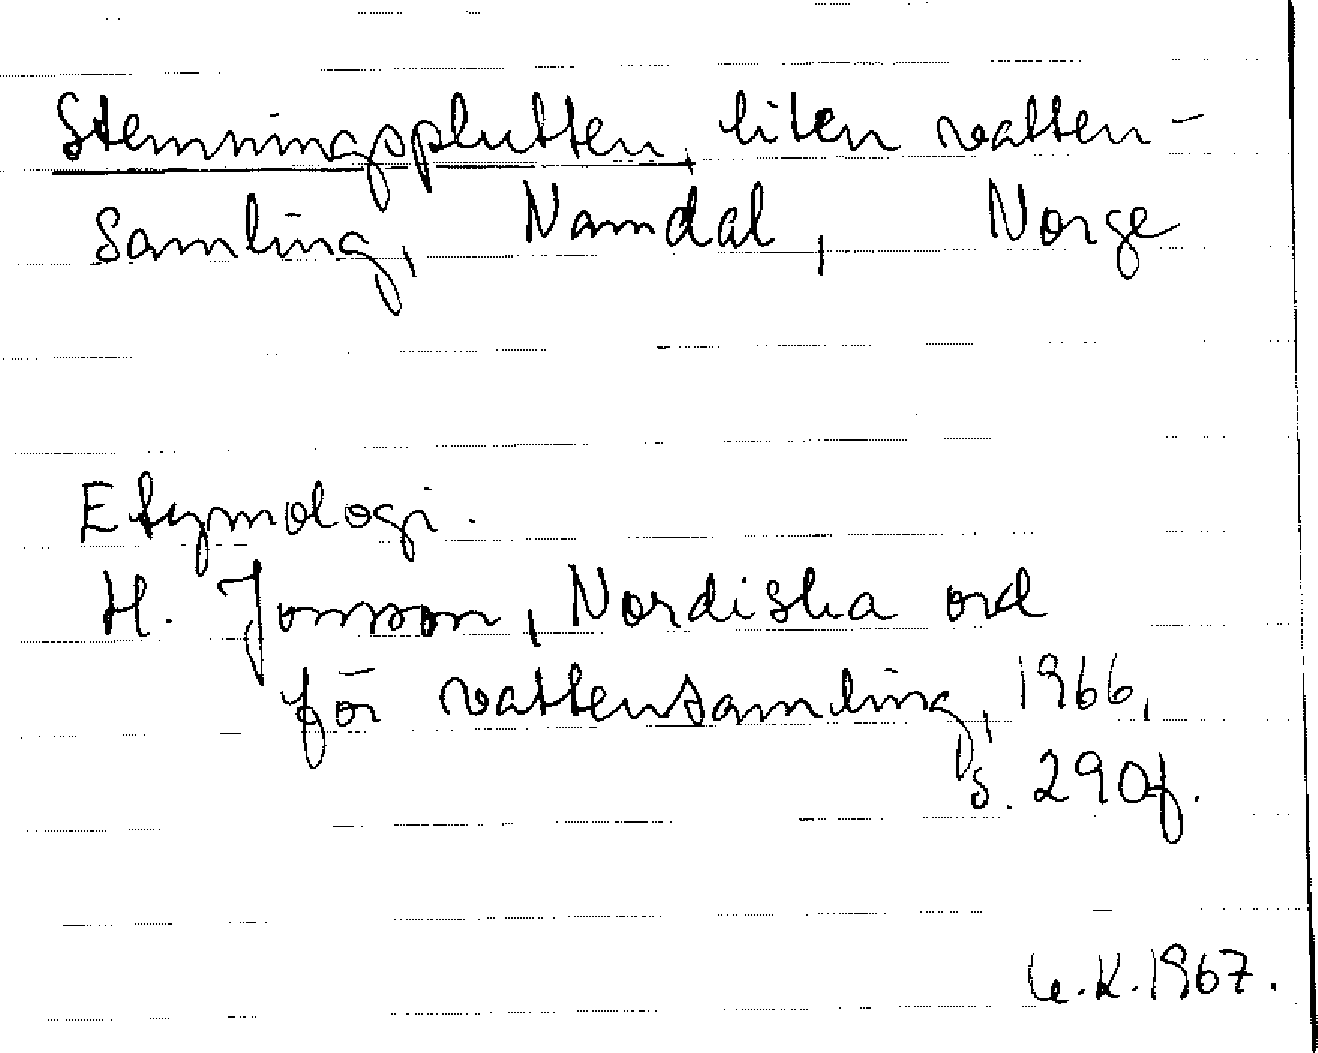 Stemningsplutten, liten vatten-
samling, Namdal, Norge
Etymologi.
H. Jonsson, Nordiska ord
för vattensamling, 1966,
s. 290f.
K. 1967.